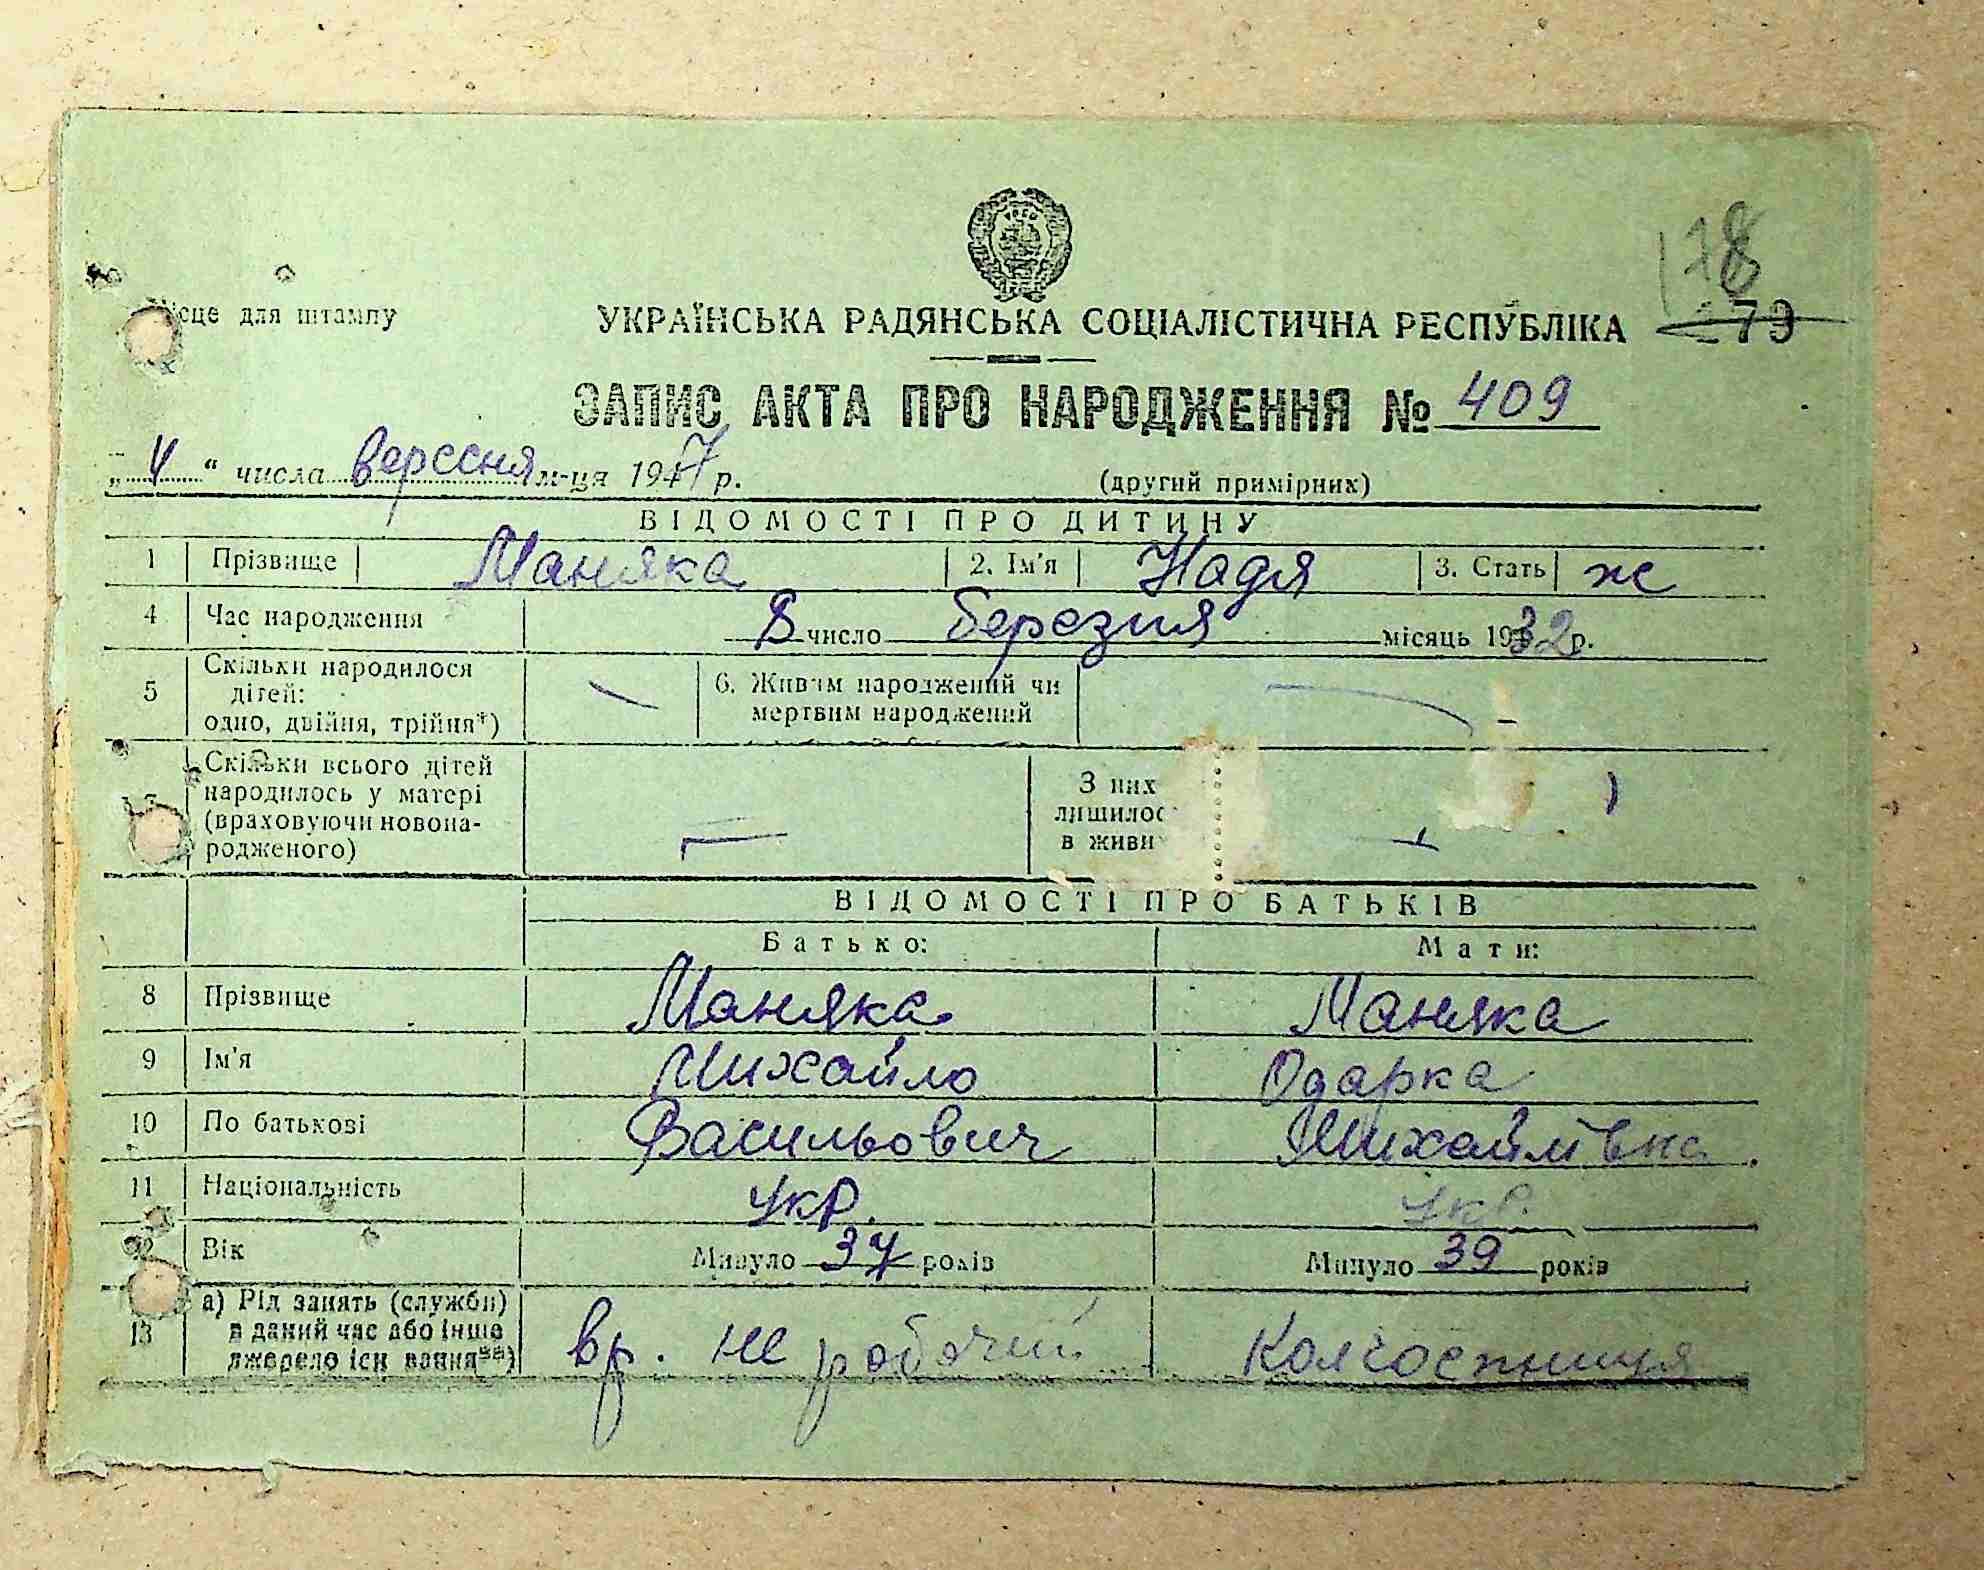 178
Місце для штампу
УКРАЇНСЬКА РАДЯНСЬКА СОЦІАЛІСТИЧНА РЕСПУБЛІКА
79
ЗАПИС АКТА ПРО НАРОДЖЕННЯ № 409
„4“ числа вересня м-ця 1947 р. (другий примірник)
ВІДОМОСТІ ПРО ДИТИНУ
1 Прізвище Маняка 2. Ім'я Надя 3. Стать ж
4 Час народження 8 число березня місяць 1932 р.
Скільки народилося
5 дітей: 6. Живим народжений чи
одно, двійня, трійня*) мертвим народжений
Скільки всього дітей
народилось у матері З них
(враховуючи новона- лишилос
родженого) в живи
ВІДОМОСТІ ПРО БАТЬКІВ
Батько: Мати:
8 Прізвище Маняка Маняка
9 Ім'я Михайло Одарка
10 По батькові Васильович Михайлівна
11 Національність укр. укр.
12 Вік Минуло 37 років Минуло 39 років
13 а) Рід занять (служби)
в даний час або інше вр. не робочий Колгоспниця
джерело існування**)